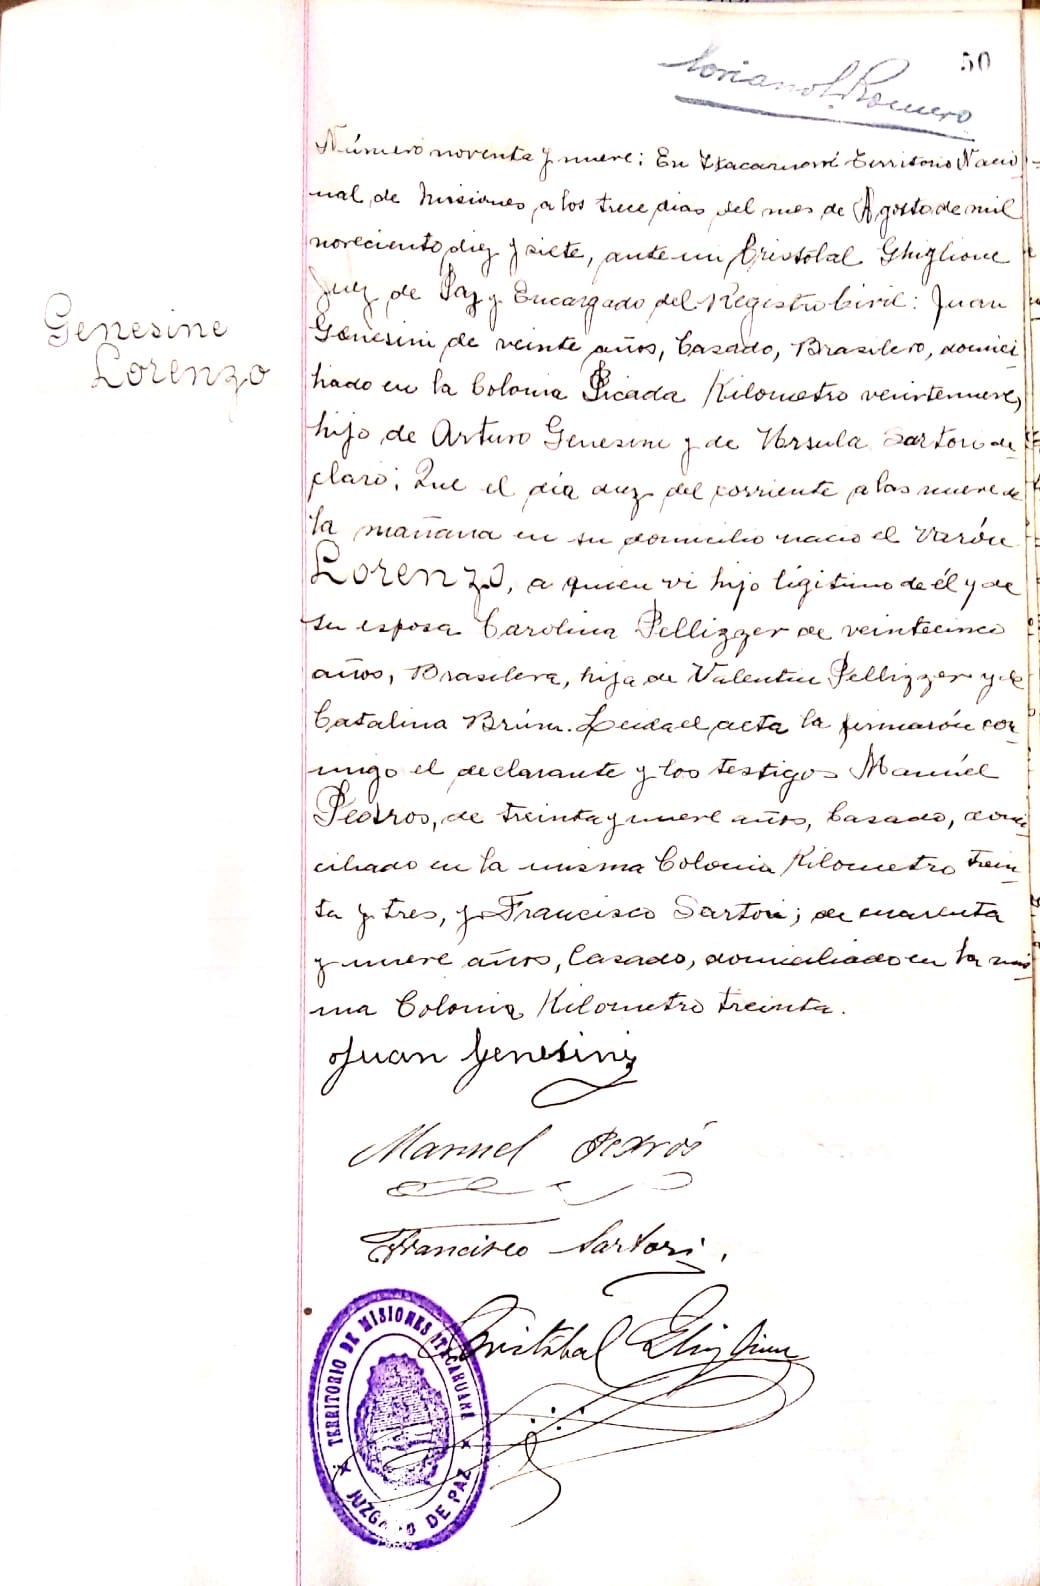 50
Soriano L. Romero
Número noventa y nueve: En Itacaruaré Territorio Nacio-
nal de Misiones, a los trece dias del mes de Agosto de mil
noveciento diez y siete, ante mi Cristobal Ghiglione
Juez de Paz y Encargado del Registro Civil: Juan
Genesini de veinte años, Casado, Brasilero, domici
liado en la Colonia Picada Kilometro veintenueve,
hijo de Arturo Genesini y de Ursula Sartori de-
claró: Que el día diez del corriente a las nueve de
la mañana en su domicilio nacio el varón
Lorenzo, a quien vi hijo ligitimo de él y de
su esposa Carolina Pellizzer de veintecinco
años, Brasilera, hija de Valentin Pellizzer y de
Catalina Brúm. Leida el acta la firmarón con-
migo el declarante y los testigos Manúel
Pedros, de treinta y nueve años, Casado, domi
ciliado en la misma Colonia Kilometro trein-
ta y tres, y Francisco Sartori; de cuarenta
y nueve años, Casado, domiciliado en la mis-
ma Colonia Kilometro treinta.
Genesine
Lorenzo
Juan Genesini
Manuel Pedrós
Francisco Sartori.
Cristóbal Ghiglione
TERRITORIO DE MISIONES ITACARUARE
JUZGADO DE PAZ